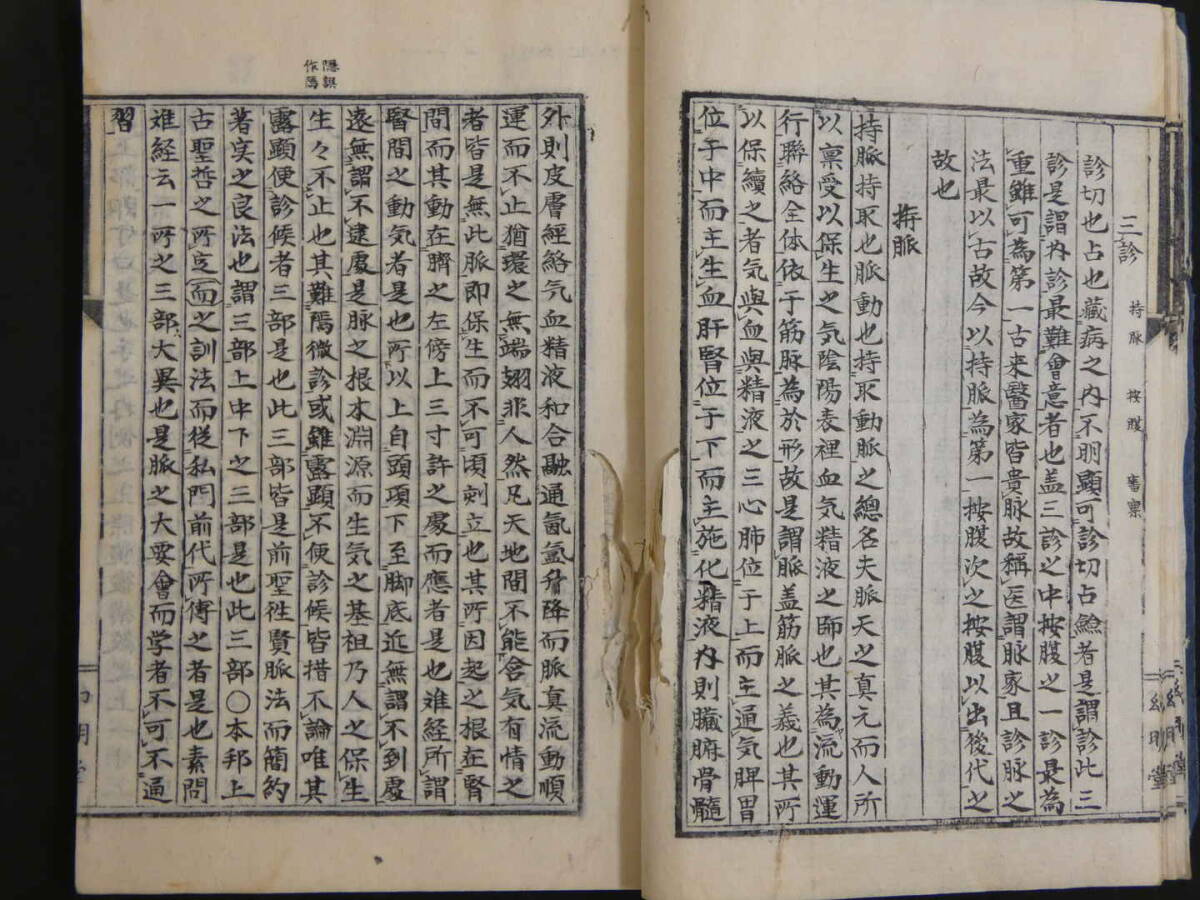 三診 持脈 按腹 審察
診切也占也藏病之内不明顯可診切占驗者是謂診此三
診是謂内診最難會意者也盖三診之中按腹之一診最為
重雖可為第一古来醫家皆貴脈故稱医謂脈家且診脈之
法最以古故今以持脈為第一按腹次之按腹以出後代之
故也
持脈
持脈持取也脈動也持取動脈之總名夫脈天之真元而人所
以禀受以保生之気陰陽表裡血気精液之師也其為流動運
行聯絡全体依于筋脈為於形故是謂脈盖筋脈之義也其所
以保續之者気與血與精液之三心肺位于上而主通気脾胃
位于中而主生血肝腎位于下而主施化精液内則臓腑骨髓
外則皮膚經絡気血精液和合融通氤氳升降而脈真流動順
運而不止猶環之無端翅非人然凡天地間不能含気有情之
者皆是無此脈即保生而不可頃刻立也其所因起之根在腎
間而其動在臍之左傍上三寸許之處而應者是也难経所謂
腎間之動気者是也所以上自頭項下至脚底近無謂不到處
遠無謂不逮處是脈之根本淵源而生気之基祖乃人之保生
生々不止也其難焉微診或雖露顯不便診候皆措不論唯其
露顯便診候者三部是也此三部皆是前聖徃賢脈法而簡約
著実之良法也謂三部上中下之三部是也此三部〇本邦上
古聖哲之所定而之訓法而従私門前代所傳之者是也素問
难経云一所之三部大異也是脈之大要會而学者不可不通
習
隠誤
作焉